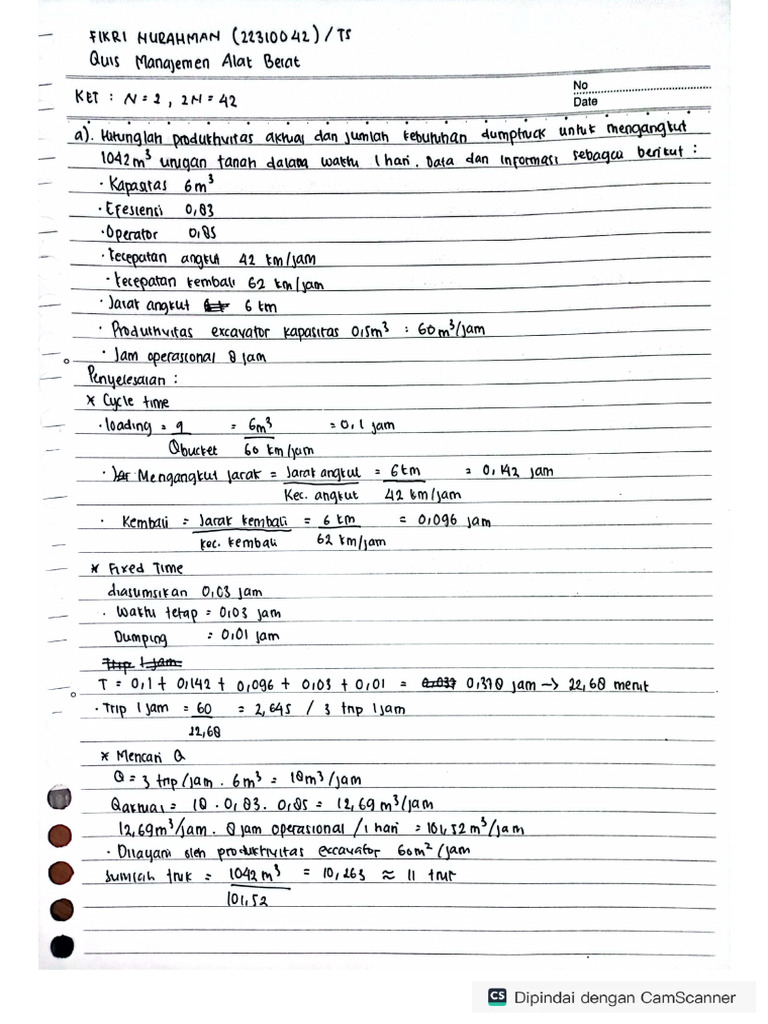 FIKRI NURAHMAN (22310042) / TS
Quis Manajemen Alat Berat
No
KET : N = 2 , 2N = 42
Date
a). Hitunglah produktivitas aktual dan jumlah kebutuhan dumptruck untuk mengangkut
1042 m³ urugan tanah dalam waktu 1 hari. Data dan informasi sebagai berikut :
· Kapasitas 6 m³
· Efesiensi 0,83
· Operator 0,85
· Kecepatan angkut 42 km/jam
· kecepatan kembali 62 km/jam
· Jarak angkut 6 km
· Produktivitas excavator kapasitas 0,5 m³ : 60 m³/jam
· Jam operasional 8 jam
Penyelesaian :
* Cycle time
· loading = q = 6m³ = 0,1 jam
Qbucket 60 km/jam
· Mengangkut jarak = Jarak angkut = 6 km = 0,142 jam
Kec. angkut 42 km/jam
· Kembali = Jarak kembali = 6 km = 0,096 jam
kec. kembali 62 km/jam
* Fixed Time
diasumsikan 0,03 jam
· Waktu tetap = 0,03 jam
Dumping = 0,01 jam
Trip 1 jam
T = 0,1 + 0,142 + 0,096 + 0,03 + 0,01 = 0.037 0,378 jam → 22,68 menit
· Trip 1 jam = 60 = 2,645 / 3 trip 1 jam
22,68
* Mencari Q
Q = 3 trip/jam . 6 m³ = 18 m³/jam
Qaktual = 18 . 0,83 . 0,85 = 12,69 m³/jam
12,69 m³/jam . 8 jam operasional / 1 hari = 101,52 m³/jam
· Dilayani oleh produktivitas excavator 60 m²/jam
Jumlah truk = 1042 m³ = 10,263 ≈ 11 truk
101,52
CS Dipindai dengan CamScanner